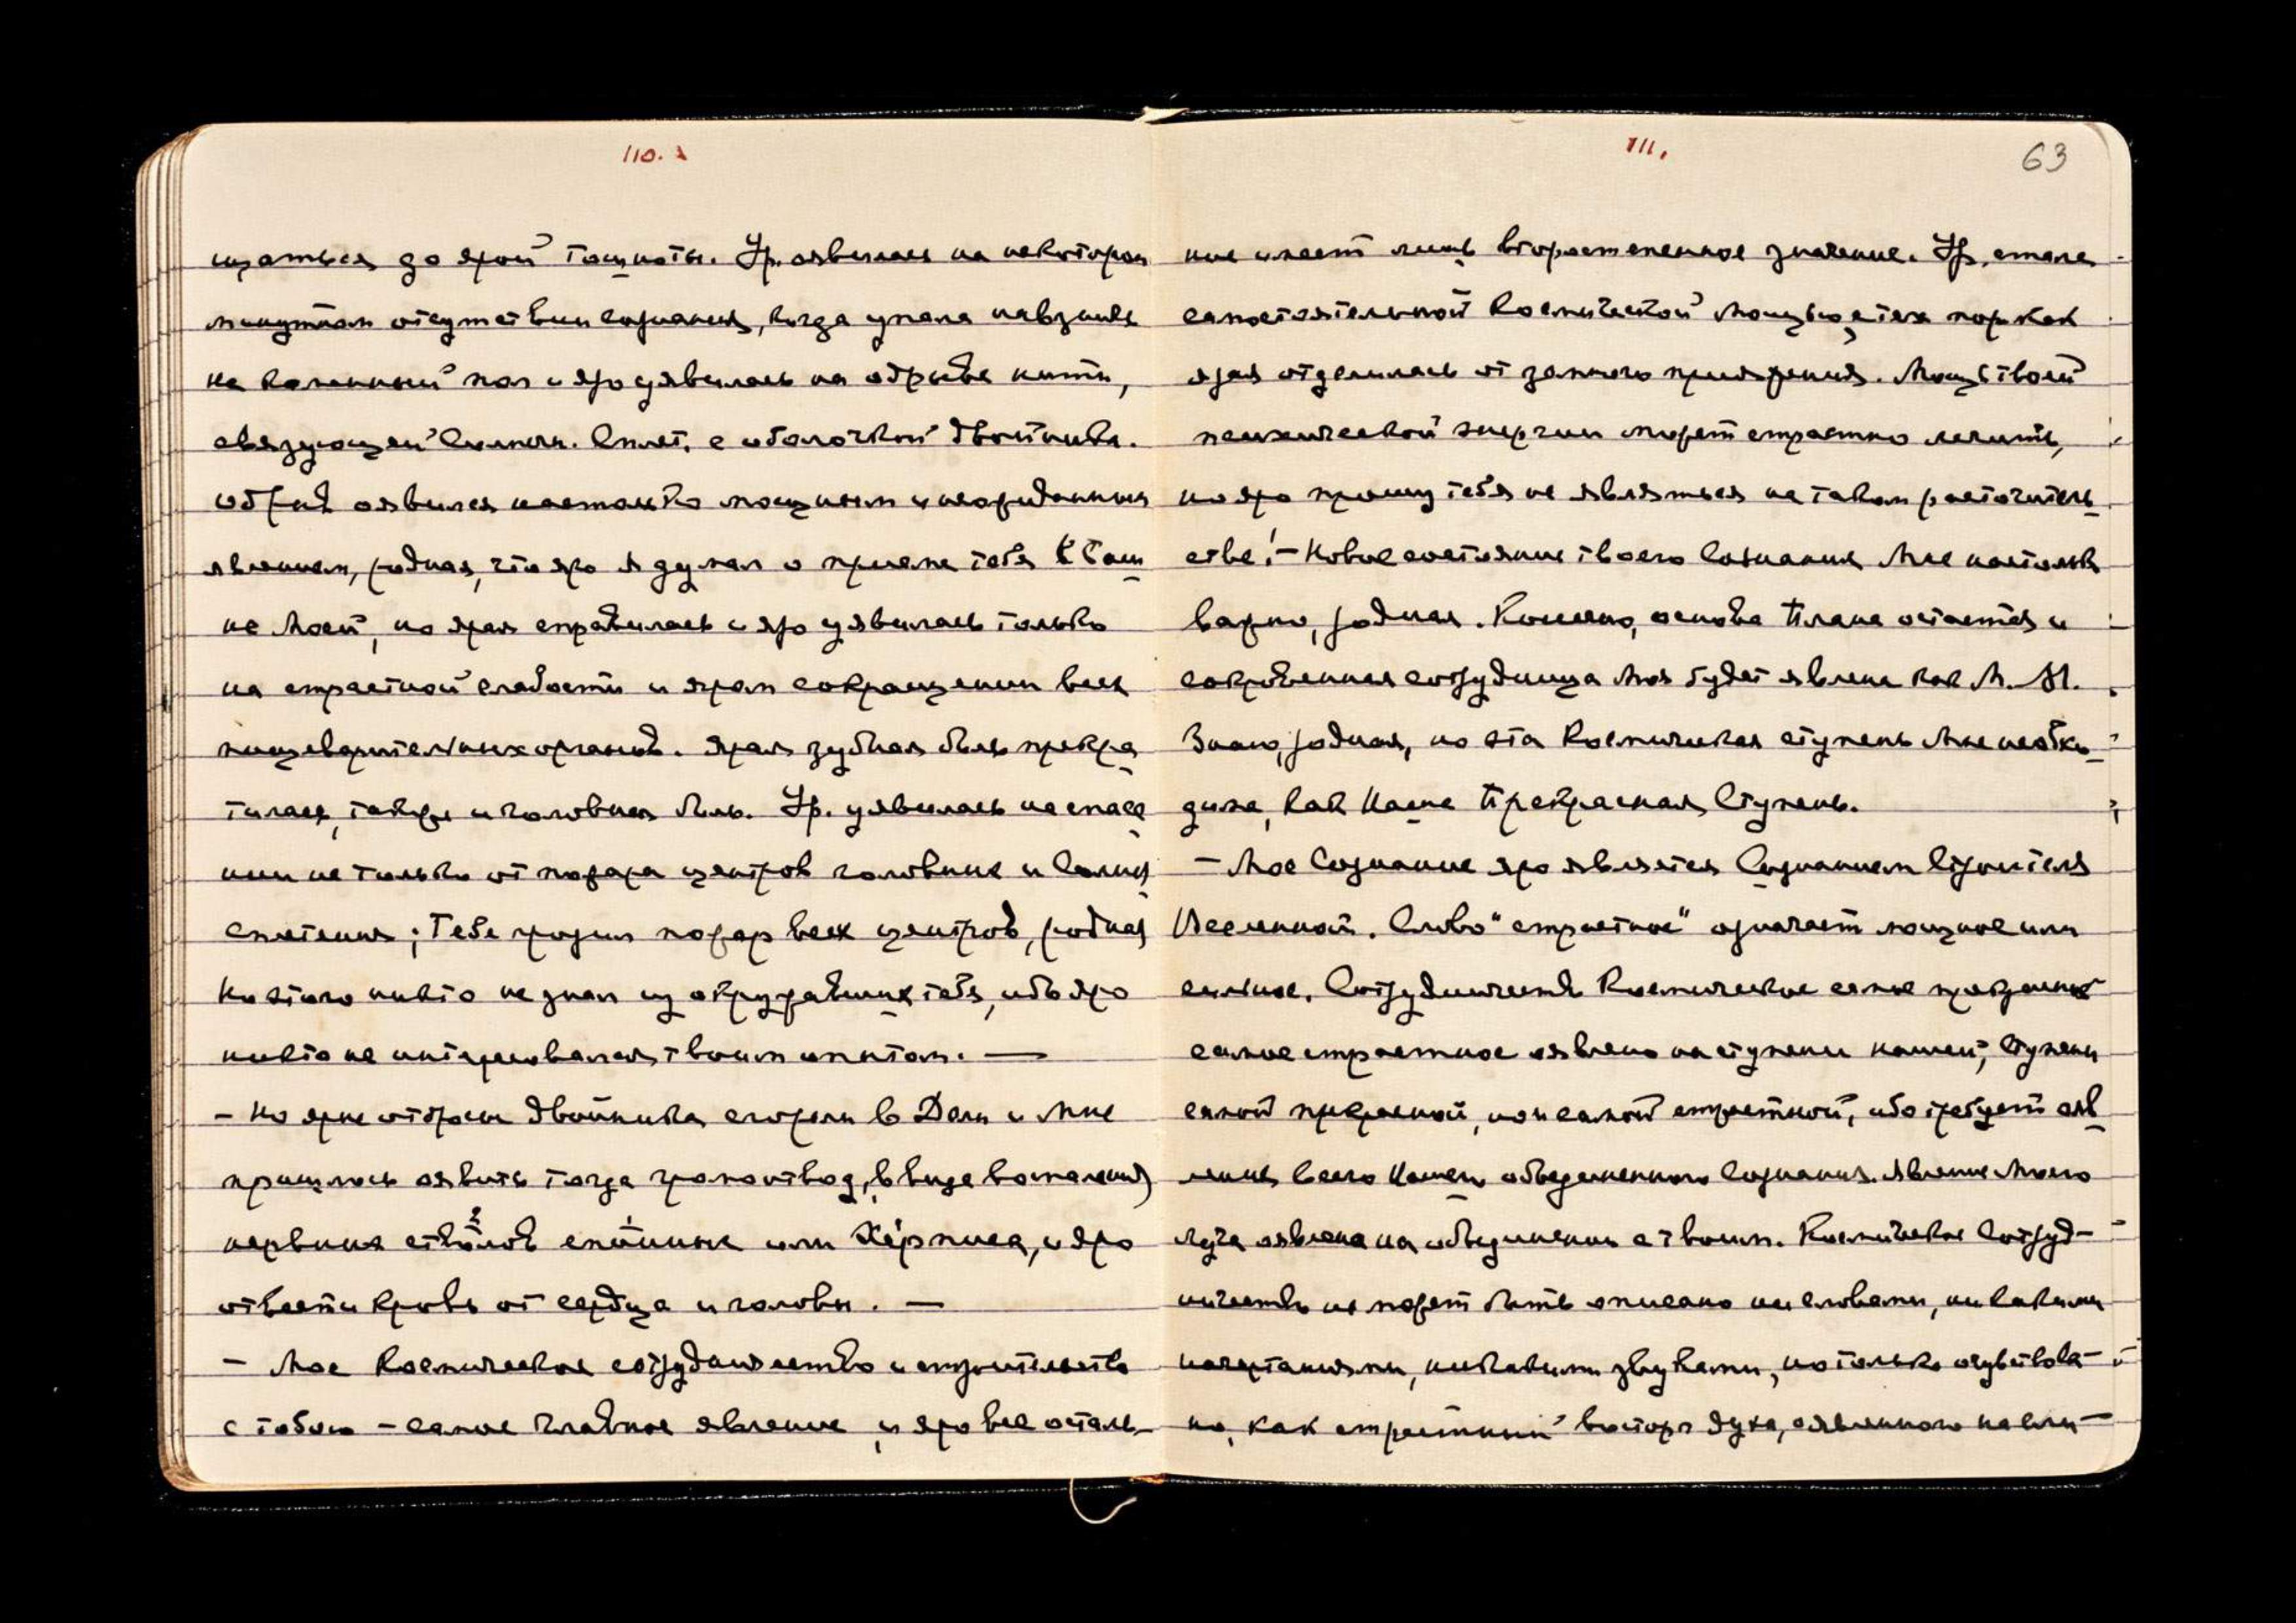 110.
щаться до ярой тошноты. Ур. явилась на некотором
минутном отсутствии сознания, когда упала навзничь
на каменный пол и яро уявилась на обрыве нити,
связующей Солнечн. Сплет. с оболочкой двойника.
обрыв оявился настолько мощным и неожиданным
явлением, родная, что яро Я думал о приеме тебя к Баш
не Моей, но ярая справилась и яро уявилась только
на страстной слабости и яром сокращении всех
пищеварительных органов. Ярая зубная боль прекра
тилась, также и головная боль. Ур. уявилась на спасе
нии не только от пожара центров головных и Солнеч
сплетения; Тебе грозил пожар всех центров, родная
Но этого никто не знал из окружавших тебя, ибо яро
никто не интересовался твоим опытом. —
- Но ярые отбросы двойника сгорели в Дели и Мне
пришлось оявить тогда громоотвод, в виде воспаления
нервных стволов спинных или Хе́рписа, и яро
отвести кровь от сердца и головы. —
- Мое Космическое сотрудничество и строительство
с тобою - самое главное явление, и яро все осталь-
111.
63
ное имеет лишь второстепенное значение. Ур. стала
самостоятельной Космической Мощью, с тех пор как
ярая отделилась от земного притяжения. Мощь твоей
психической энергии может страстно лечить,
но яро прошу тебя не являться на таком расточитель
стве! - Новое состояние твоего Сознания Мне настольк
важно, родная. Конечно, основа Плана остается и
сокровенная сотрудница Моя будет явлена как М. М.
Знаю, родная, но эта Космическая ступень Мне необхо
дима, как Наша Прекрасная Ступень.
- Мое Сознание яро является Сознанием Строителя
Вселенной. Слово "страстное" означает мощное или
сильное. Сотрудничество Космическое самое прекрасное
самое страстное оявлено на ступени нашей, Ступени
самой прекрасной, но и самой страстной, ибо требует ояв
ления всего Нашего объединенного Сознания. Явление Моего
Луча оявлена на объединении с твоим. Космическое Сотруд-
ничество не может быть описано ни словами, ни какими
начертаниями, никакими звуками, но только очувствова-
но, как страстный восторг духа, оявленного на сли-